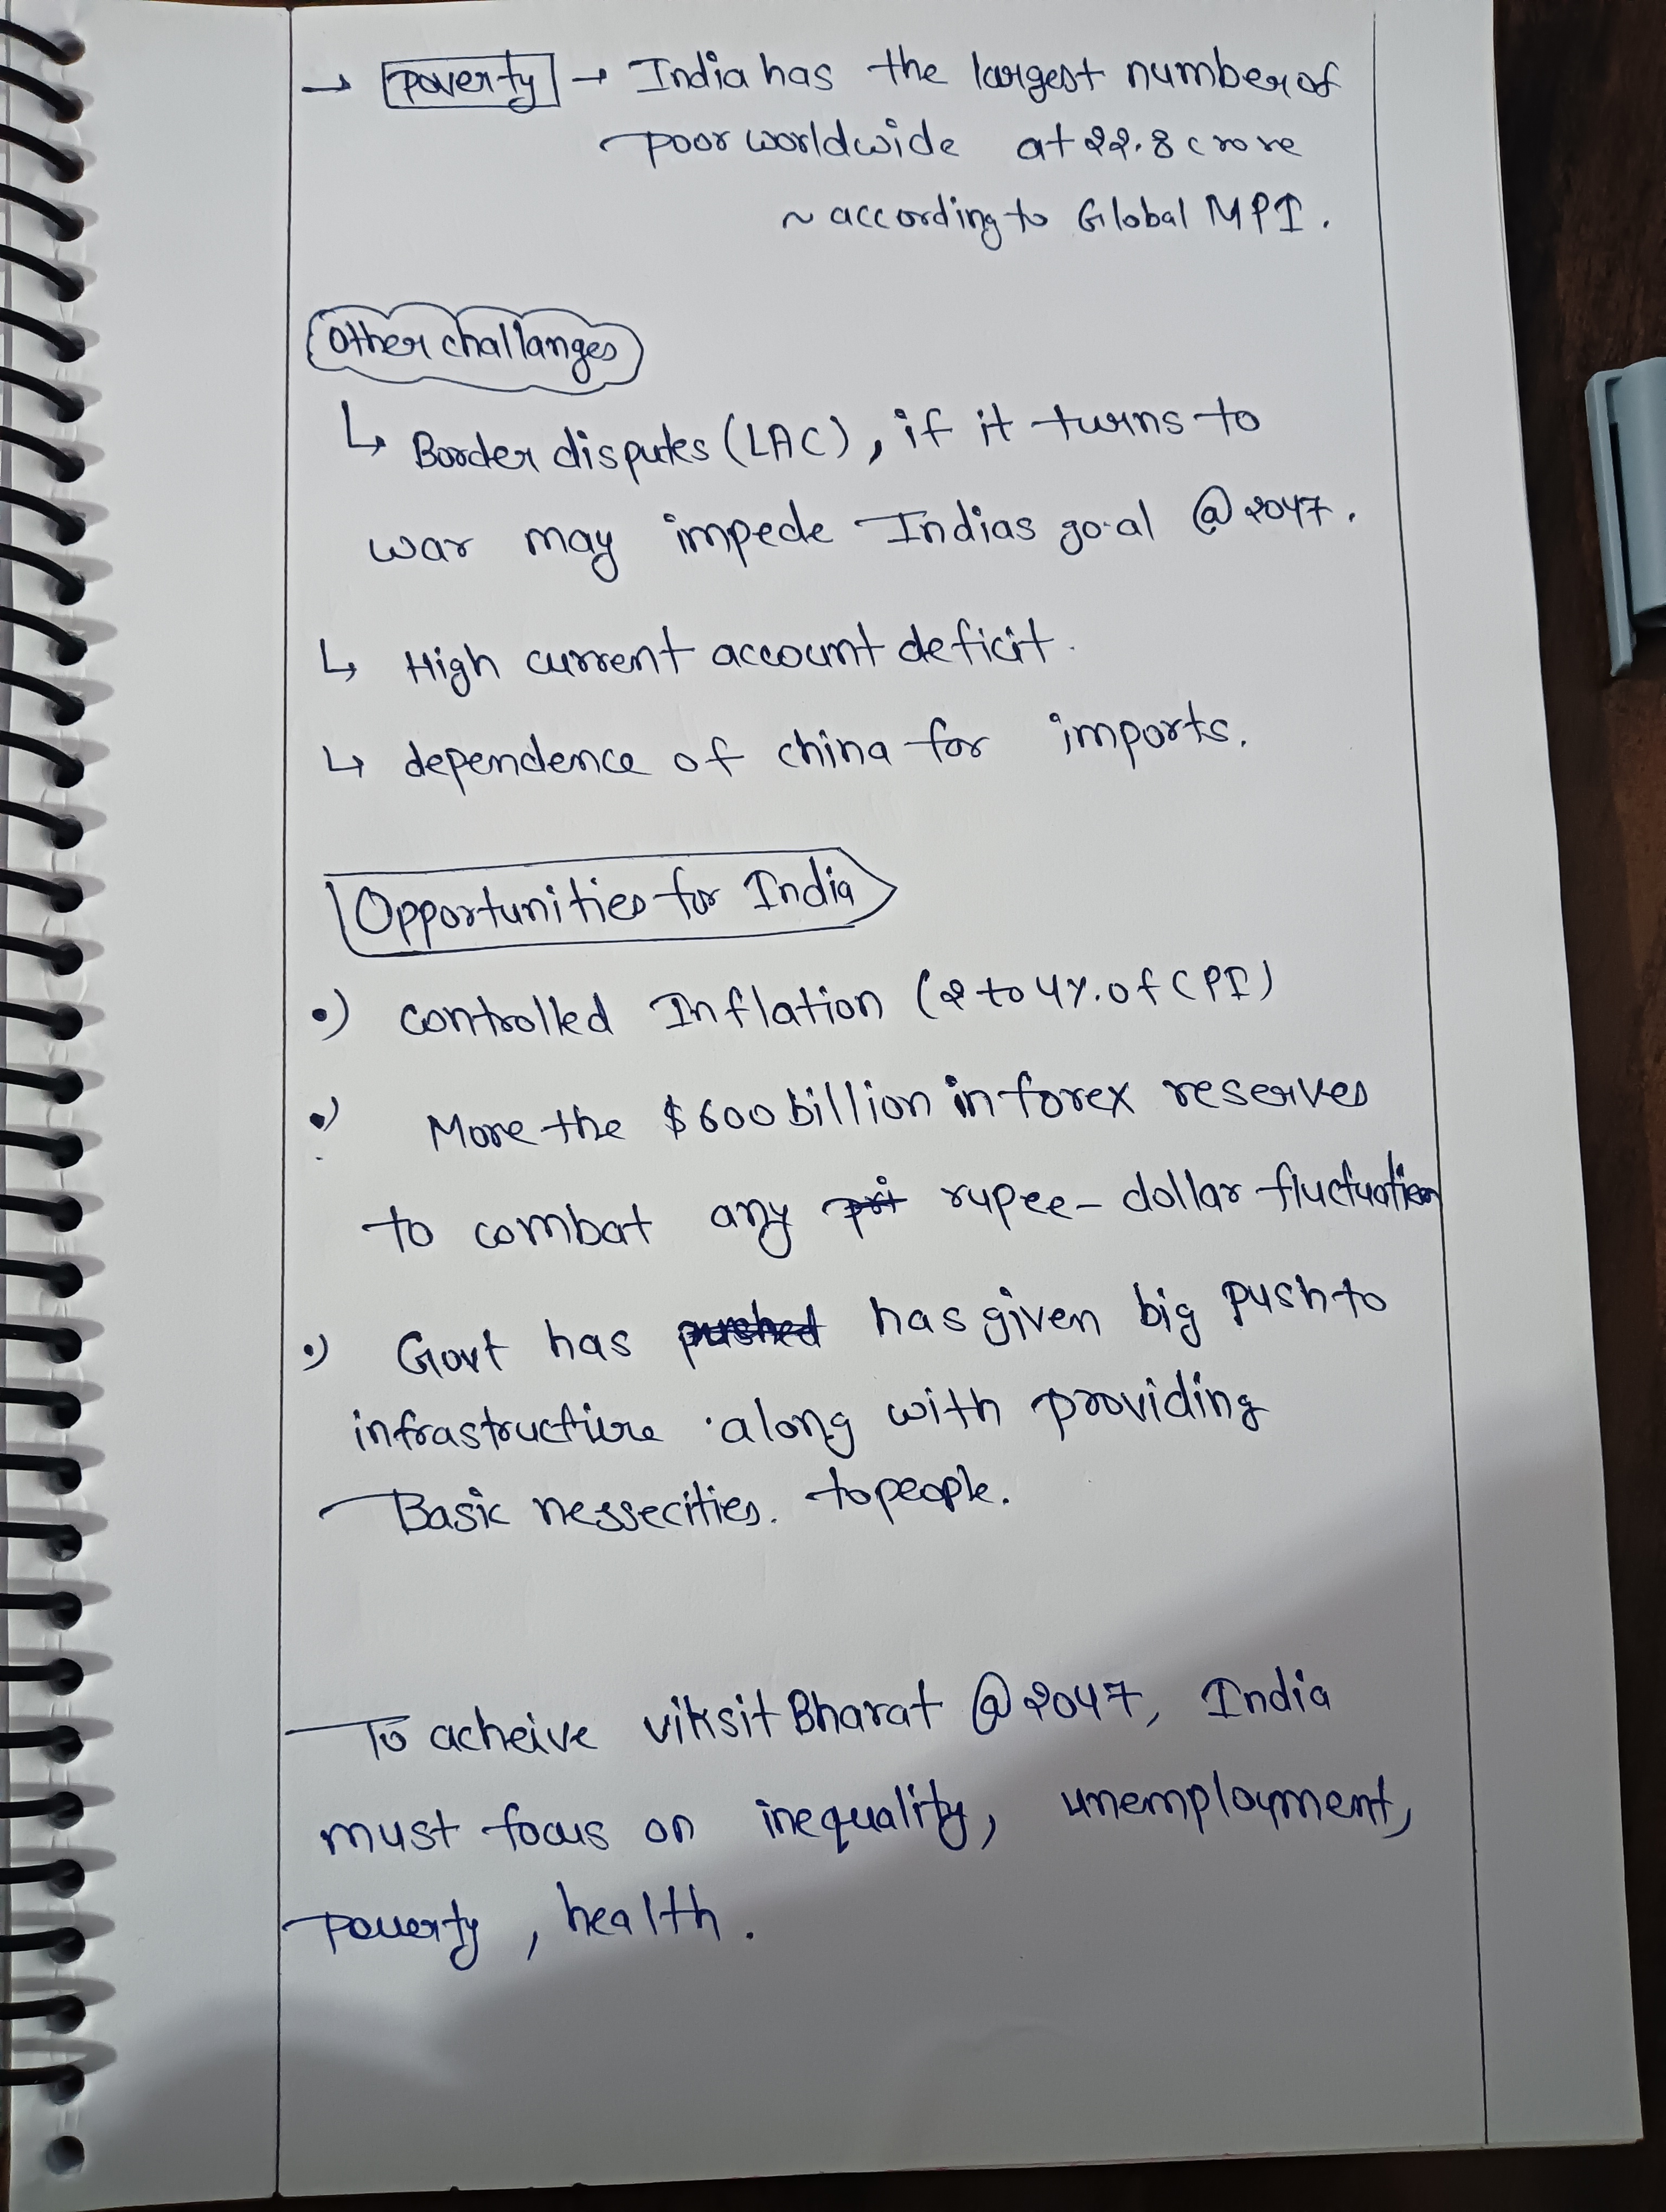 → Poverty → India has the largest number of
poor worldwide at 22.8 crore
~ according to Global MPI.
Other challanges
↳ Border disputes (LAC), if it turns to
war may impede Indias goal @2047.
↳ High current account deficit.
↳ dependence of china for imports.
Opportunities for India
•) controlled Inflation (2 to 4% of CPI)
•) More the $600 billion in forex reserves
to combat any rupee-dollar fluctuation
•) Govt has pushed has given big push to
infrastructure along with providing
Basic nessecities. to people.
To acheive viksit Bharat @2047, India
must focus on inequality, unemployment,
Poverty, health.